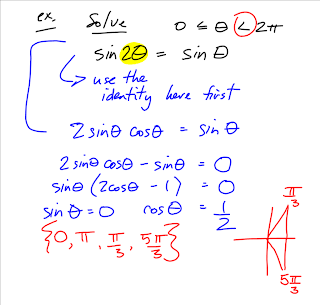 ex. Solve 0 ≤ θ < 2π
sin 2θ = sin θ
use the
identity here first
2 sinθ cosθ = sin θ
2 sinθ cosθ - sinθ = 0
sinθ (2cosθ - 1) = 0
sin θ = 0 cosθ = 1/2
{0, π, π/3, 5π/3}
π/3
5π/3